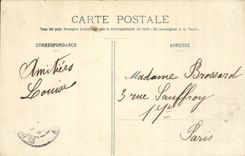 CARTE POSTALE
Tous les pays étrangers n'acceptent pas la correspondance au recto (Se renseigner à la Poste)
CORRESPONDANCE
ADRESSE
Amitiés
Louise
Madame Brossard
3 rue Sauffroy
17e
Paris